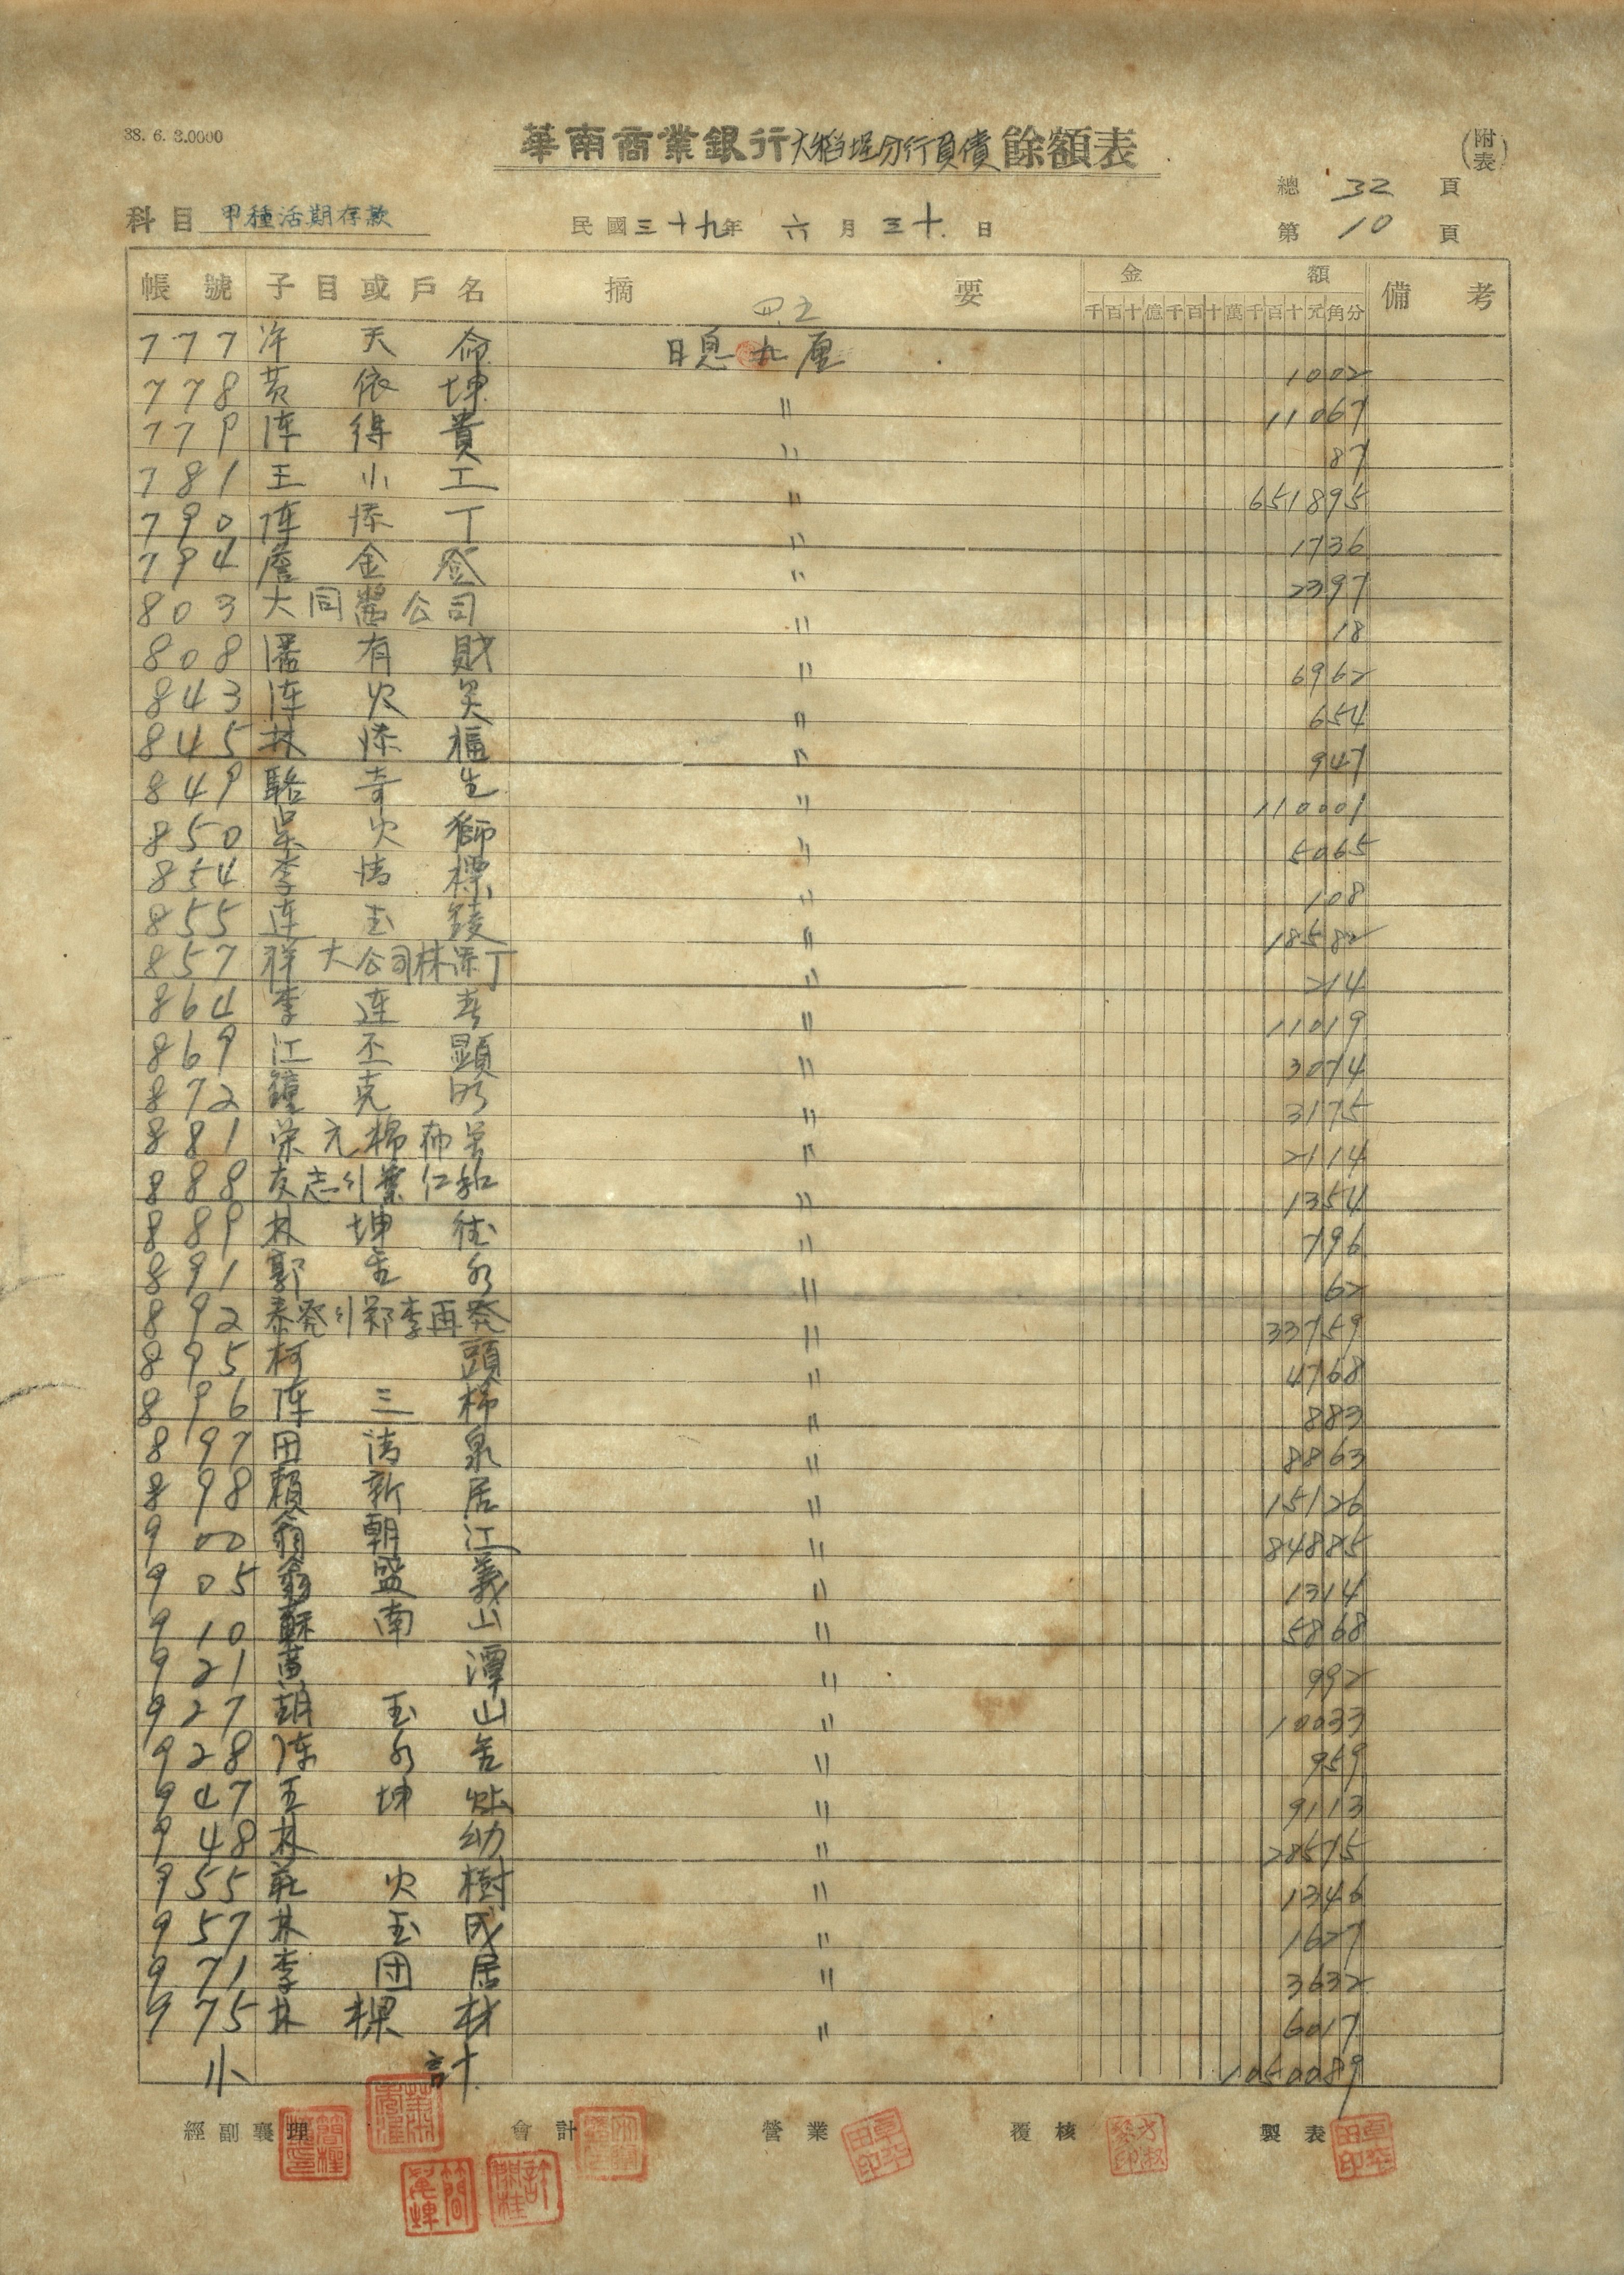 38. 6. 3.0000
華南商業銀行大稻埕分行負債餘額表
(附表)
總 32 頁
科目 甲種活期存款 民國三十九年 六月三十日 第 10 頁
帳號 子目或戶名 摘要 金額 備考
千百十億千百十萬千百十元角分
777 許天命 日息九厘 1002
778 黃依坤 〃 11067
779 陳得貴 〃 87
781 王小工 〃 651895
790 陳添丁 〃 1736
794 詹金登 〃 2397
803 大同 公司 〃 18
808 潘有財 〃 6962
843 陳火炎 〃 654
845 林添福 〃 947
849 駱奇生 〃 110001
850 吳火獅 〃 5065
854 李清標 〃 108
855 連玉 〃 18582
857 祥大公司林添丁 〃 214
864 李連春 〃 11019
869 江丕顯 〃 3074
872 鐘克明 〃 3175
881 栄元棉布 〃 2114
888 友志行葉仁和 〃 1354
889 林坤 〃 796
891 郭金水 〃 62
892 泰発行郑李再発 〃 33759
895 柯頭 〃 4768
896 陳三棉 〃 883
897 田清泉 〃 8863
898 賴新居 〃 15126
900 翁朝江 〃 84885
905 翁盛義 〃 1314
910 蘇南山 〃 5868
921 黃潭 〃 992
927 胡玉山 〃 10033
928 陳水 〃 959
947 王坤 〃 9113
948 林幼 〃 28575
955 莊火樹 〃 1346
957 林玉成 〃 1627
971 李団居 〃 3632
975 林樑材 〃 6017
小計 1050089
經副襄理 會計 營業 覆核 製表